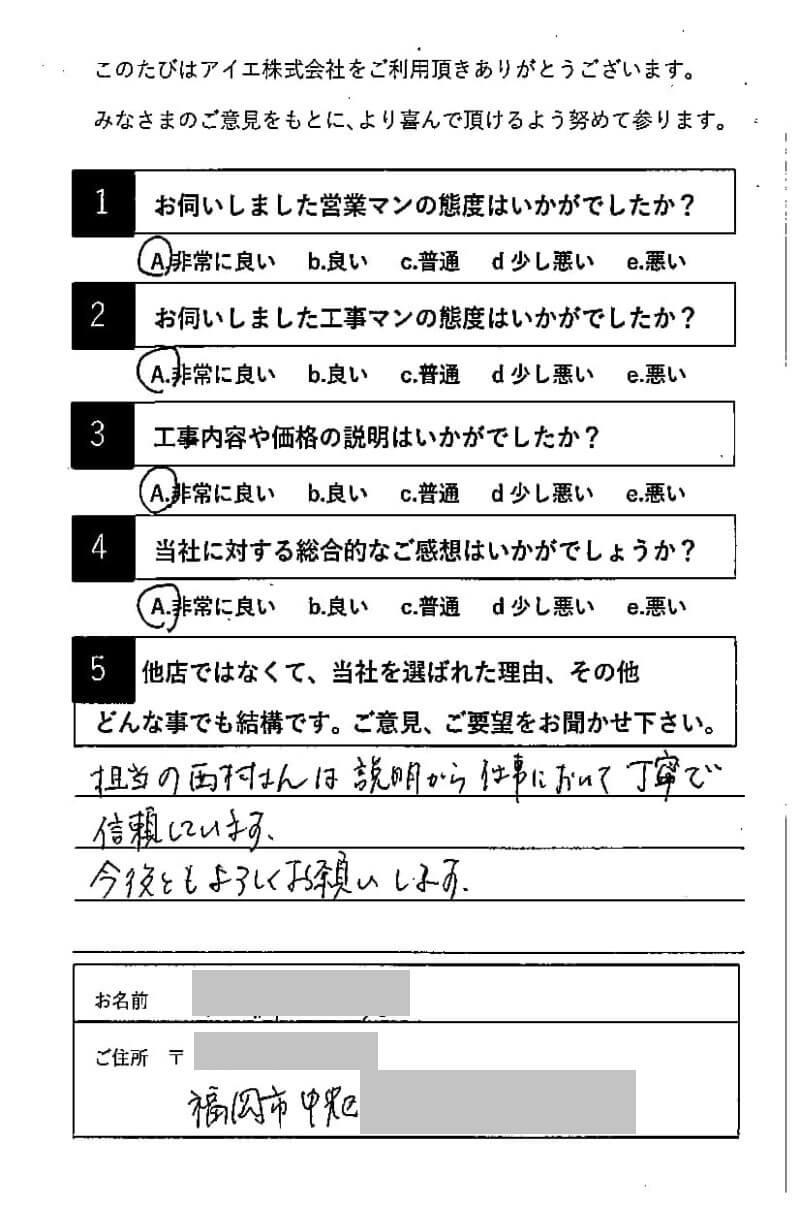 このたびはアイエ株式会社をご利用頂きありがとうございます。
みなさまのご意見をもとに、より喜んで頂けるよう努めて参ります。
1 お伺いしました営業マンの態度はいかがでしたか？
A.非常に良い b.良い c.普通 d 少し悪い e.悪い
2 お伺いしました工事マンの態度はいかがでしたか？
A.非常に良い b.良い c.普通 d 少し悪い e.悪い
3 工事内容や価格の説明はいかがでしたか？
A.非常に良い b.良い c.普通 d 少し悪い e.悪い
4 当社に対する総合的なご感想はいかがでしょうか？
A.非常に良い b.良い c.普通 d 少し悪い e.悪い
5 他店ではなくて、当社を選ばれた理由、その他
どんな事でも結構です。ご意見、ご要望をお聞かせ下さい。
担当の西村さんは説明から仕事において丁寧で
信頼しています。
今後ともよろしくお願いします。
お名前
ご住所 〒
福岡市中央区